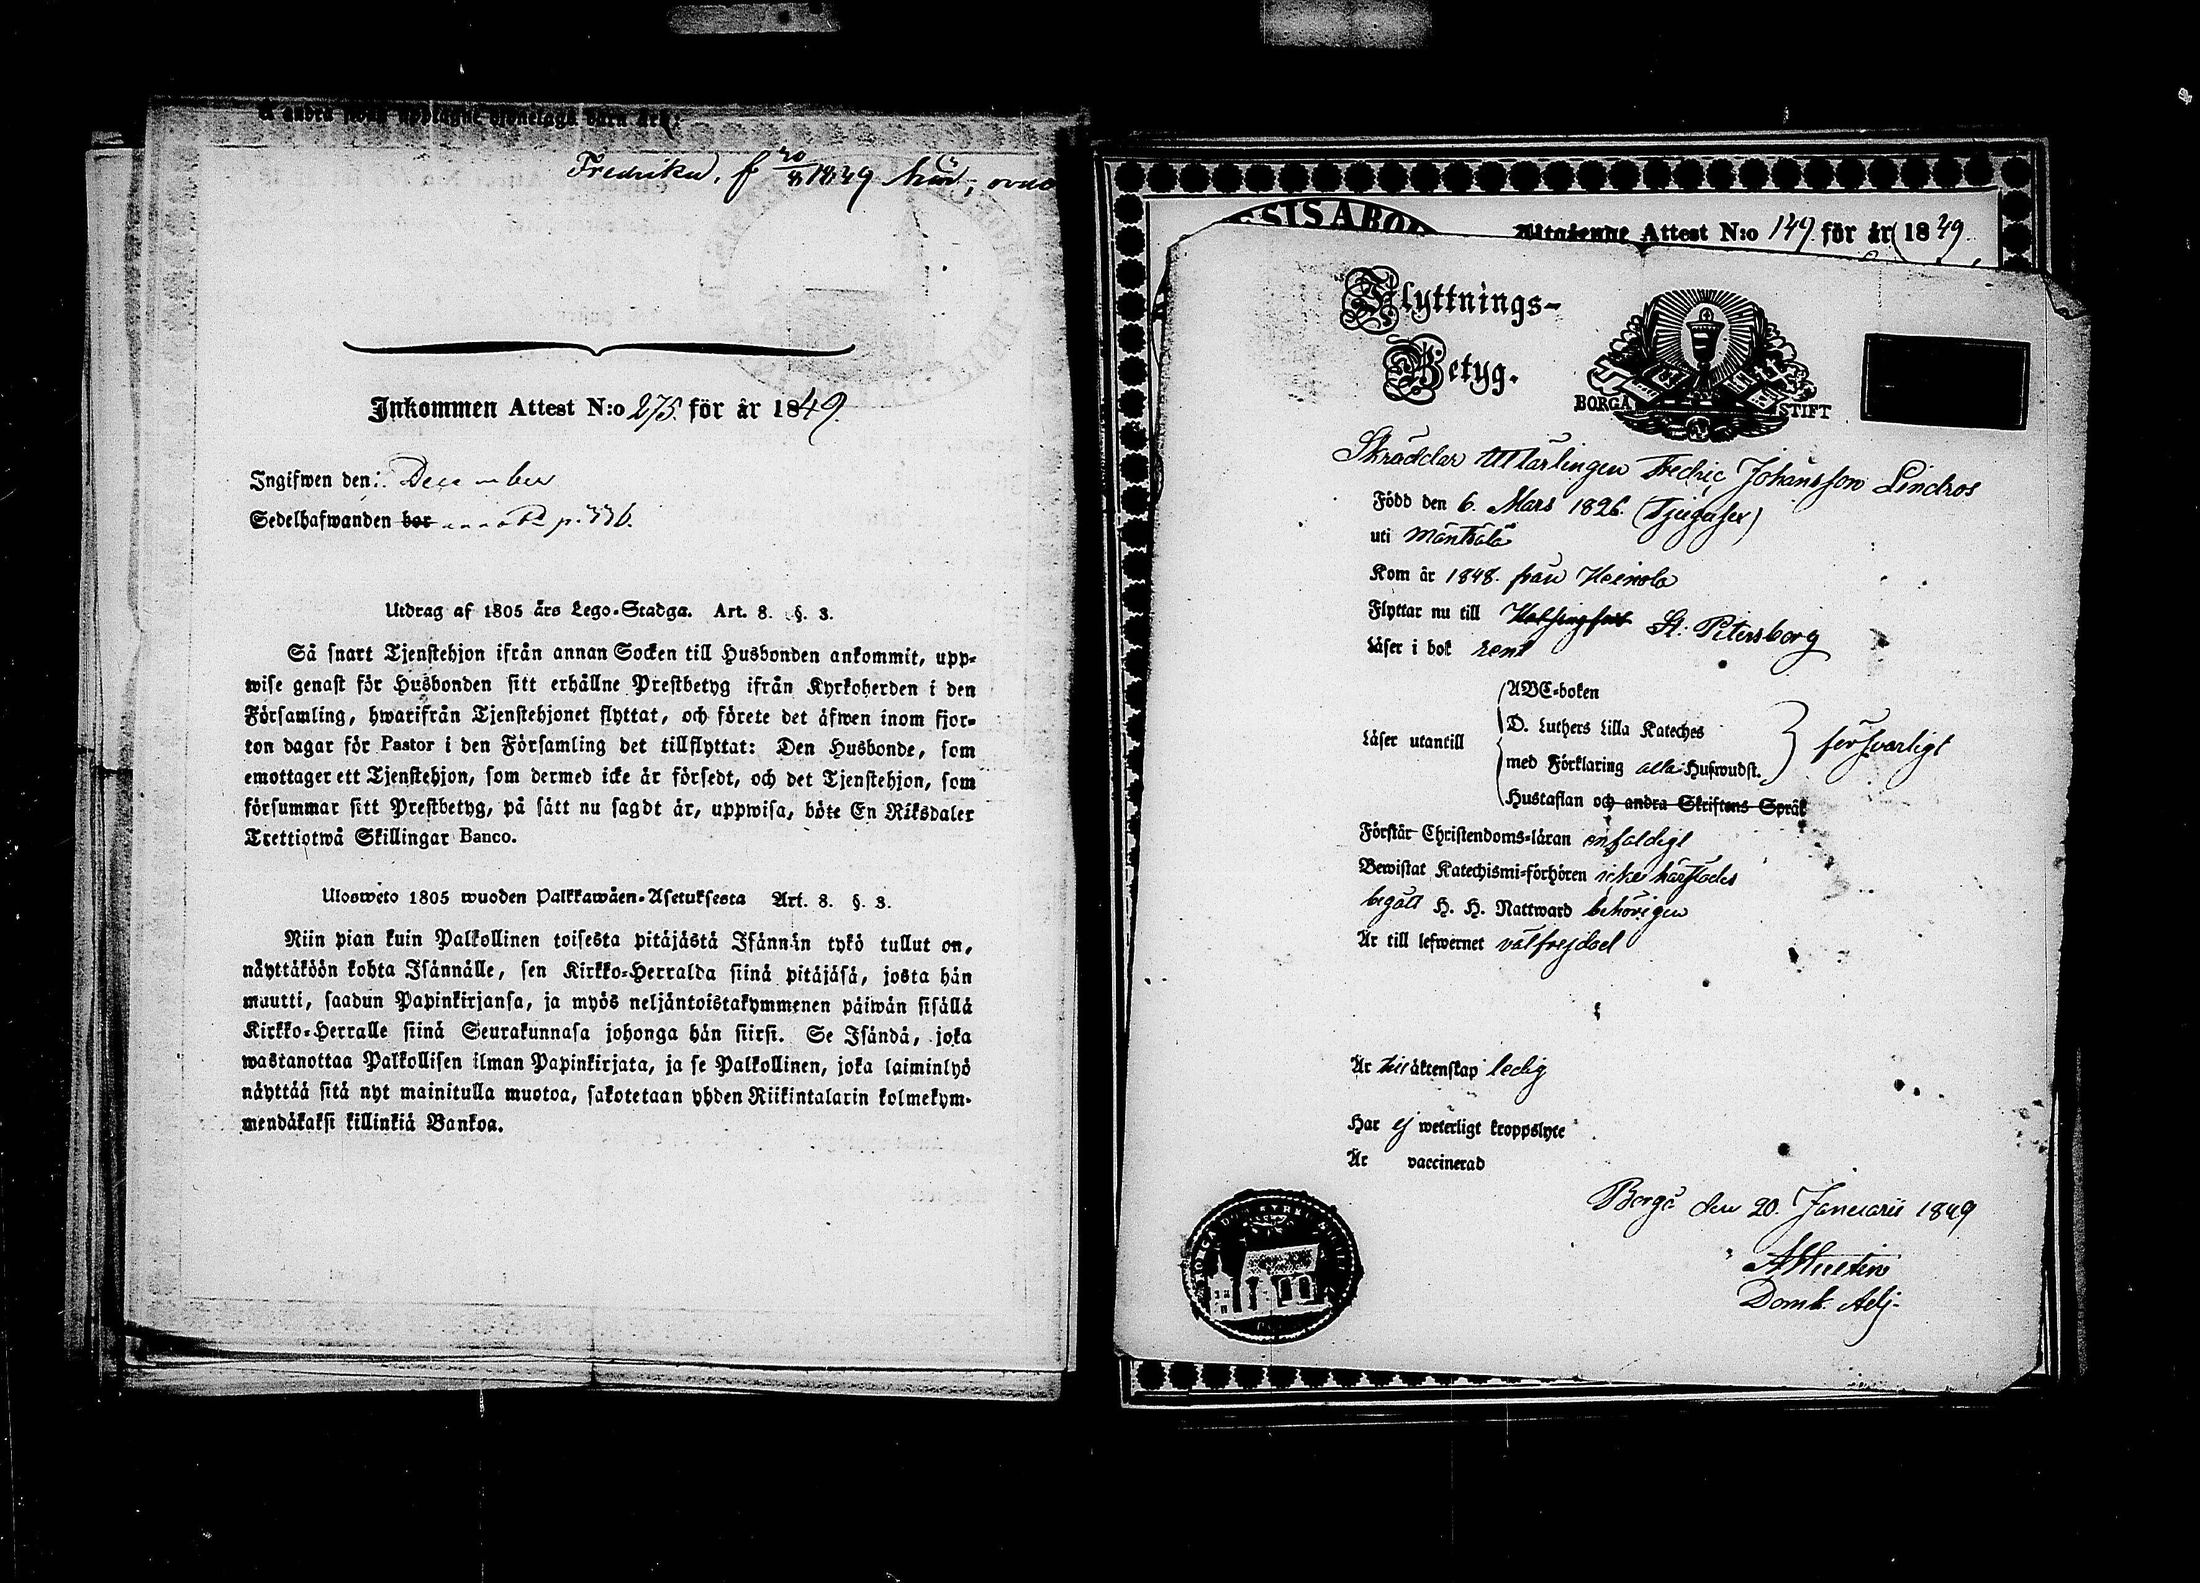 Fredrika, f 20/8 1849
Inkommen Attest N:o 275. för år 1849.
Ingifwen den: December
Sedelhafwanden bor p. 336.
Utdrag af 1805 års Lego-Stadga. Art. 8. §. 3.
Så snart Tjenstehjon ifrån annan Socken till Husbonden ankommit, upp-
wise genast för Husbonden sitt erhållne Prestbetyg ifrån Kyrkoherden i den
Församling, hwarifrån Tjenstehjonet flyttat, och förete det äfwen inom fjor-
ton dagar för Pastor i den Församling det tillflyttat: Den Husbonde, som
emottager ett Tjenstehjon, som dermed icke är försedt, och det Tjenstehjon, som
försummar sitt Prestbetyg, på sätt nu sagdt är, uppwisa, böte En Riksdaler
Trettiotwå Skillingar Banco.
Uloswéto 1805 wuoden Palkkawäen-Asetuksesta Art. 8. §. 3.
Niin pian kuin Palkollinen toisesta pitäjästä Isännän tykö tullut on,
näyttäköön kohta Isännälle, sen Kirkko-Herralda siinä pitäjäsä, josta hän
muutti, saadun Papinkirjansa, ja myös neljäntoistakymmenen päiwän sisällä
Kirkko-Herralle siinä Seurakunnasa johonga hän siirsi. Se Isändä, joka
wastanottaa Palkollisen ilman Papinkirjata, ja se Palkollinen, joka laiminlyö
näyttää sitä nyt mainitulla muotoa, sakotetaan yhden Riikintalarin kolmekym-
mendäkaksi killinkiä Bankoa.
Utgående Attest N:o 149 för år 1849.
Flyttnings-
Betyg.
BORGÅ STIFT
Skräddar Lärlingen Fredric Johansson Lindros
Född den 6. Mars 1826. (Tjugusex)
uti Mäntsälä
Kom år 1848. från Heinola
Flyttar nu till Helsingfors St. Petersborg
Läser i bok rent
Läser utantill
ABC-boken
D. Luthers Lilla Kateches
med Förklaring alla Hufwudst.
Hustaflan och andra Skriftens Språk
försvarligt
Förstår Christendoms-läran enfaldigt
Bewistat Katechismi-förhören icke härstädes
begått H. H. Nattward behörigen
Är till lefwernet välfrejdad
Är till äktenskap ledig
Har ej weterligt kroppslyte
Är vaccinerad
Borgå den 20. Januarii 1849
Domk. Adj.